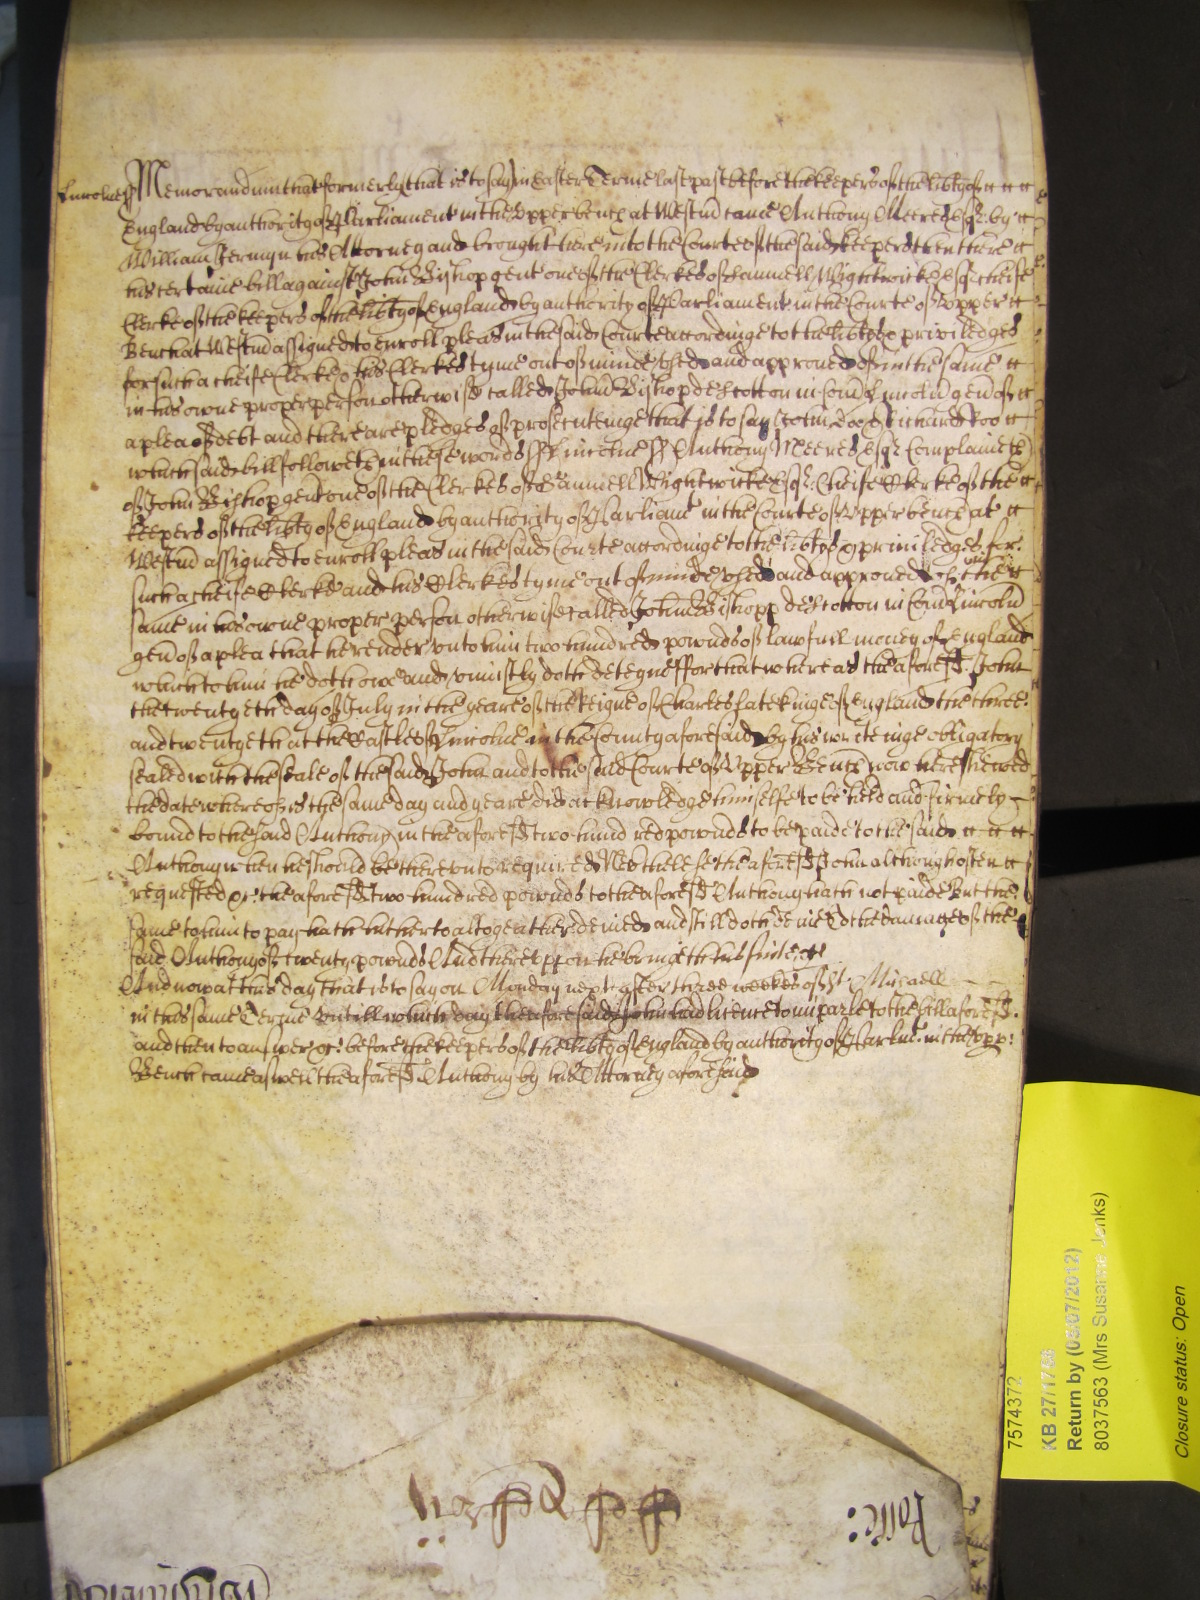 Lincolne ss Memorandum that formerly that is to say in Easter Terme last past before the keepers of the lib'ty of
England by authority of Parliament in the Upper bench at Westm' came Anthony Meeres Esqr. by
William Jermyn his Attorney and brought here into the Courte of the said keepers then there
his certaine bill against John Bishop gent one of the Clerkes of Samuell Wightwicke Esqr. cheife
Clerke of the keepers of the lib'ty of England by authority of Parliament in the Courte of Upper
Bench at Westm' assigned to enroll pleas in the said Courte accordinge to the lib'tyes & priviledges
for such a cheife Clerke & his Clerkes tyme out of minde used and approved of in the same
in his owne proper person otherwise called John Bishop de Scotton in Com' Lincoln' gen' of
a plea of debt and there are pledges of prosecuteinge that is to say John Doo & Richard Roo
which said bill followeth in these words ss Lincolne ss Anthony Meeres Esqr. Complaineth
of John Bishop gent one of the Clerkes of Samuell Wightwicke Esqr. Cheife Clerke of the
keepers of the lib'ty of England by authority of Parliam't in the Courte of Upper bench at
Westm' assigned to enroll pleas in the said Courte accordinge to the lib'tyes & priviledges for
such a cheife Clerke and his Clerkes tyme out of minde used and approved of in the
same in his owne proper person otherwise called John Bishopp de Scotton in Com' Lincoln'
gen' of a plea that he render unto him two hundred pownds of lawfull money of England
which to him he doth owe and uniustly doth deteyne ffor that whereas the aforesd. John
the twentyeth day of July in the yeare of the Reigne of Charles late kinge of England the three
and twentyeth at the Castle of Lincolne in the County aforesaid by his writeinge obligatory
sealed with the seale of the said John and to the said Courte of Upper Bench now here shewed
the date whereof is the same day and yeare did acknowledge himselfe to be held and firmely
bound to the said Anthony in the aforesd. two hundred pownds to be paide to the said
Anthony when he should be thereunto required Nev'thelesse the aforesd. John although often
requested &c. the aforesd. two hundred pownds to the aforesd. Anthony hath not paide But the
same to him to pay hath hitherto altogeather denied and still doth denie To the damage of the
said Anthony of twenty pownds And thereuppon he bringeth his suite &c
And now at this day that is to say on Monday next after three weekes of St. Michaell
in this same Terme Untill which day the aforesaid John had licence to imparle to the bill aforesd.
and then to answer &c. before the keepers of the lib'ty of England by authority of Parliam't. in the Upp:
Bench came aswell the aforesd. Anthony by his Attorney aforesaid
Rolle:
7574372
KB 27/1788
Return by (03/07/2012)
8037563 (Mrs Susanne Jenks)
Closure status: Open